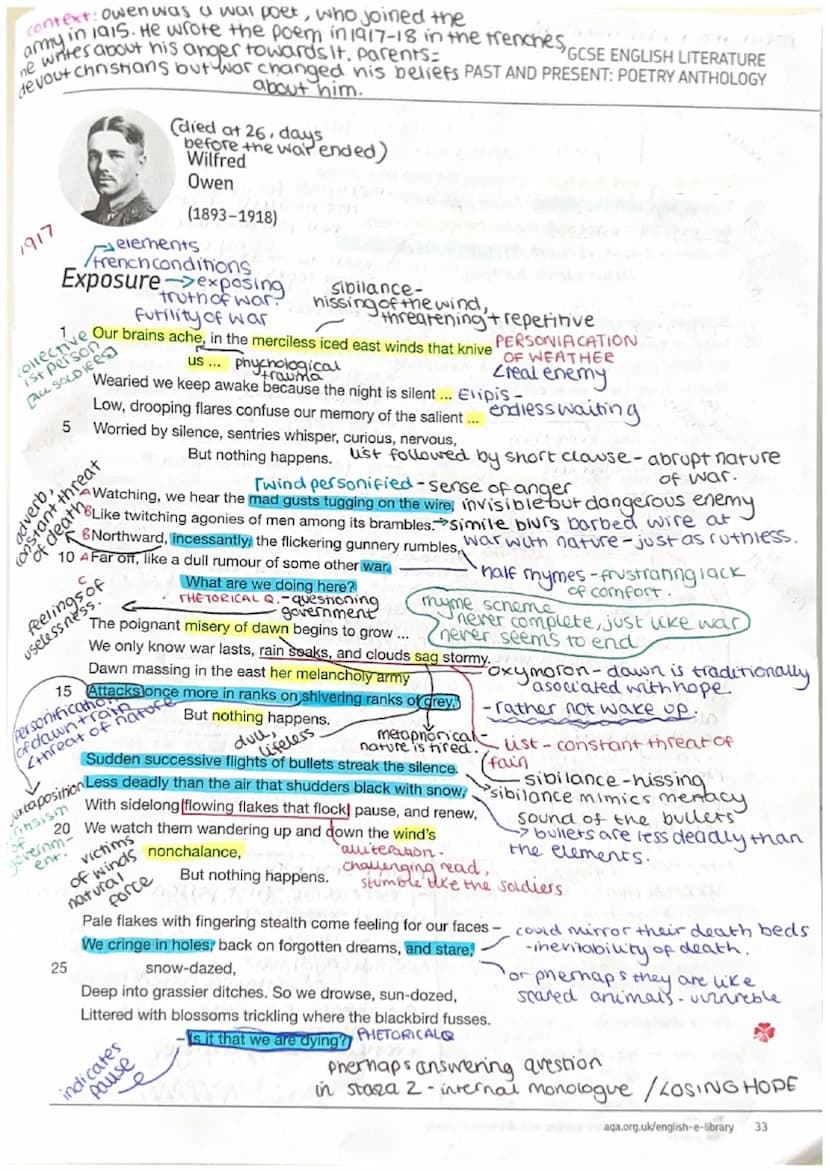 context: Owen was a war poet, who joined the
army in 1915. He wrote the poem in 1917-18 in the trenches,
he writes about his anger towards it. Parents=
devout christians but war changed his beliefs
about him.
GCSE ENGLISH LITERATURE
PAST AND PRESENT: POETRY ANTHOLOGY
(died at 26, days
before the war ended)
Wilfred
Owen
(1893–1918)
1917
elements
trench conditions
Exposure → exposing
truth of war?
futility of war
sibilance-
hissing of the wind,
threatening + repetitive
collective
1st person
[ALL SOLDIERS]
1 Our brains ache, in the merciless iced east winds that knive
us ...
PERSONIFICATION
OF WEATHER
phychological
trauma
real enemy
Wearied we keep awake because the night is silent ...
Elipis-
endless waiting
Low, drooping flares confuse our memory of the salient ...
5 Worried by silence, sentries whisper, curious, nervous,
But nothing happens.
list followed by short clause - abrupt nature
of war.
wind personified - sense of anger
invisible but dangerous enemy
adverb,
constant threat
of death
A Watching, we hear the mad gusts tugging on the wire,
B Like twitching agonies of men among its brambles.
→ simile blurs barbed wire at
war with nature - just as ruthless.
B Northward, incessantly, the flickering gunnery rumbles,
10 A Far off, like a dull rumour of some other war.
half rhymes - frustrating lack
of comfort.
C What are we doing here?
RHETORICAL Q. - questioning
government
feelings of
uselessness.
rhyme scheme
never complete, just like war
never seems to end
The poignant misery of dawn begins to grow ...
We only know war lasts, rain soaks, and clouds sag stormy.
Dawn massing in the east her melancholy army
oxymoron - dawn is traditionally
asociated with hope.
- rather not wake up.
15 Attacks once more in ranks on shivering ranks of grey,
But nothing happens.
Personification
of dawn + rain
threat of nature
dull,
lifeless
metaphorical-
nature is tired.
list - constant threat of
fain
Sudden successive flights of bullets streak the silence.
sibilance - hissing
sibilance mimics menacy
sound of the bullets
Less deadly than the air that shudders black with snow,
→ bullets are less deadly than
the elements.
juxtaposition
of
governm-
ent.
With sidelong flowing flakes that flock, pause, and renew,
20 We watch them wandering up and down the wind's
nonchalance,
But nothing happens.
alliteration-
challenging read,
stumble like the soldiers
victims
of winds
natural
force
Pale flakes with fingering stealth come feeling for our faces –
could mirror their death beds
-inevitability of death.
We cringe in holes, back on forgotten dreams, and stare,
25 snow-dazed,
or pherhaps they are like
scared animals -
Deep into grassier ditches. So we drowse, sun-dozed,
Littered with blossoms trickling where the blackbird fusses.
– Is it that we are dying?
RHETORICAL Q
indicates
pause
pherhaps answering question
in staza 2 - internal monologue / LOSING HOPE
aqa.org.uk/english-e-library 33